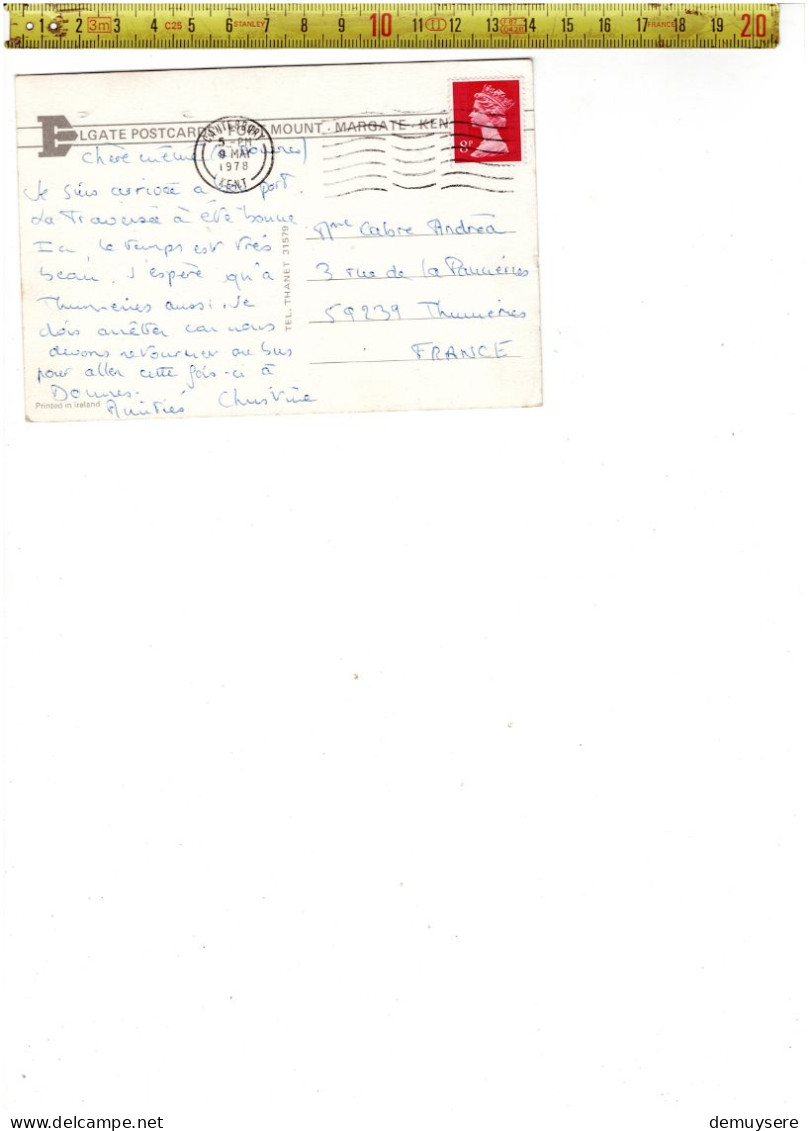 1 2 3m 3 4 C25 5 6 STANLEY 7 8 9 10 11 II 12 13 14 15 16 17 FRANCE 18 19 20
ELGATE POSTCARDS MOUNT · MARGATE · KEN
CANTERBURY
5 - PM
9 MAY
1978
KENT
8P
Chère mémé (Douvres)
Je suis arrivée à port.
La traversée à été bonne
Ici, le temps est très
beau. J'espère qu'à
Thumeries aussi. Je
dois arrêter car nous
devons retourner au bus
pour aller cette fois-ci à
Douvres.
Amitiés Christine
Printed in Ireland
TEL. THANET 31579
Mme Cabre Andréa
3 rue de la
59239 Thumeries
FRANCE
demuysere